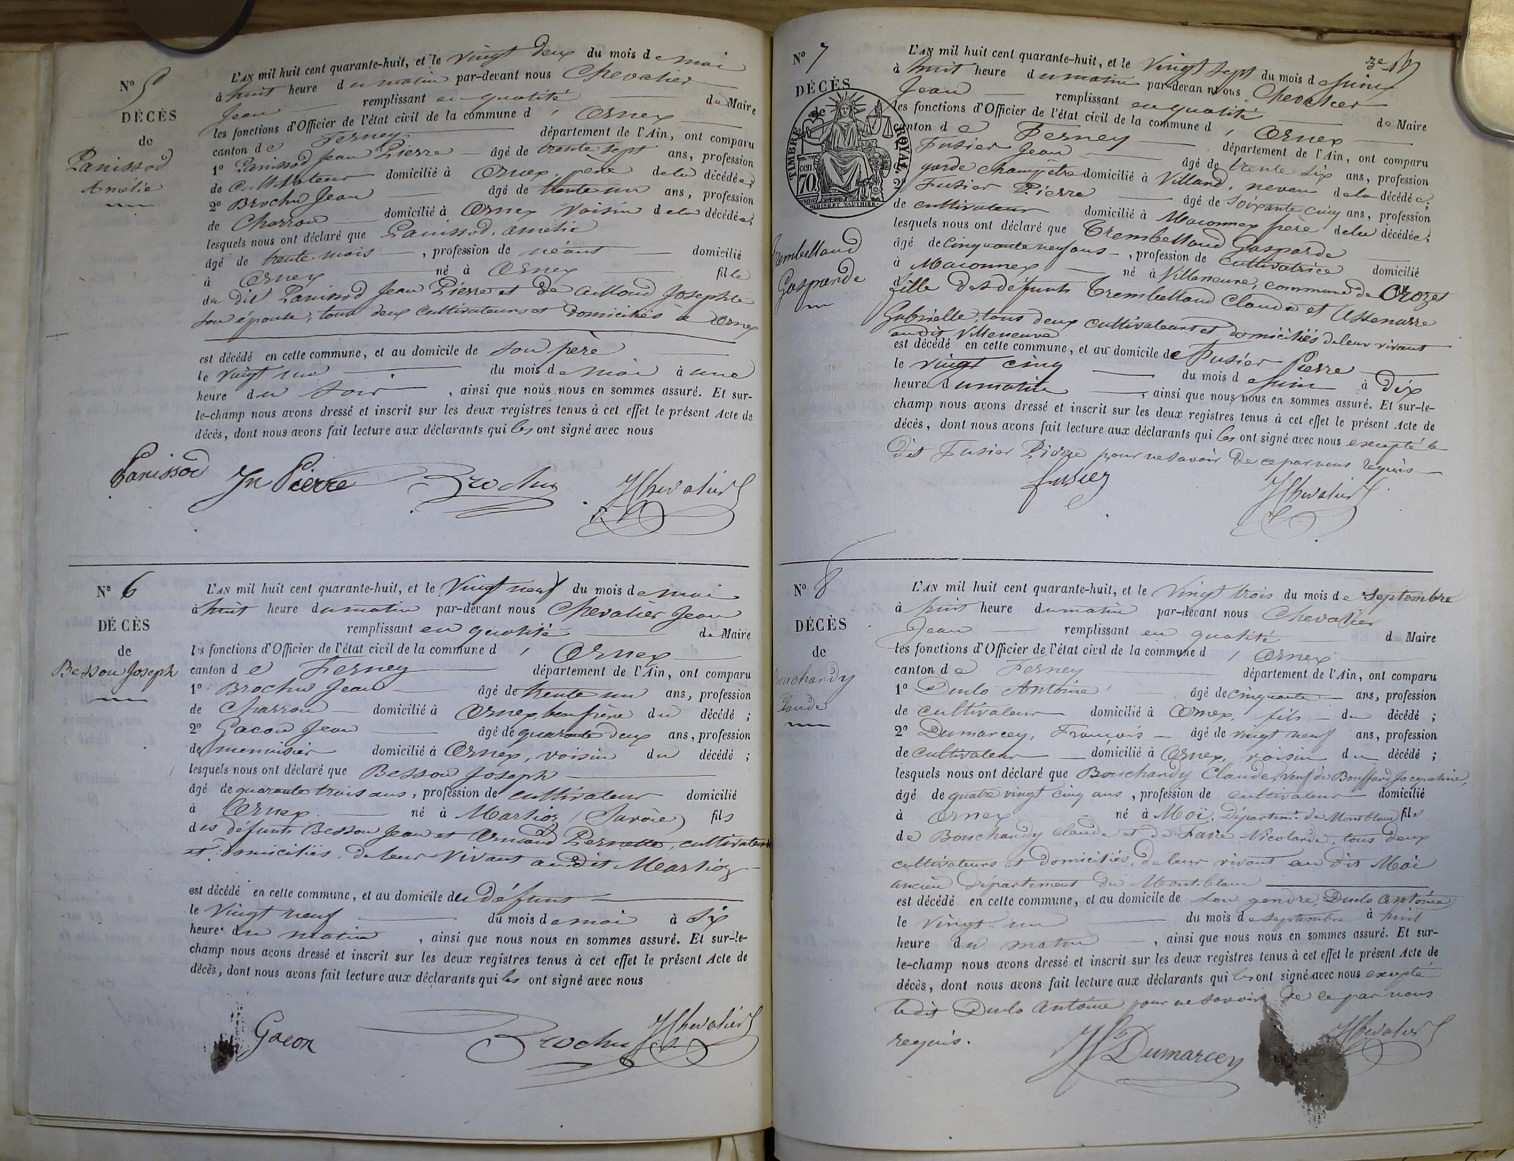 N° 5
DÉCÈS
de
Panissod
Amélie
L'AN mil huit cent quarante-huit, et le vingt deux du mois de mai
à huit heure du matin par-devant nous Chevalier
Jean remplissant en qualité de Maire
les fonctions d'Officier de l'état civil de la commune d' Ornex
canton de Ferney département de l'Ain, ont comparu
1° Panissod Jean Pierre âgé de trente sept ans, profession
de Cultivateur domicilié à Ornex, père de la décédée;
2° Brochu Jean âgé de trente un ans, profession
de Charron domicilié à Ornex voisin de la décédée;
lesquels nous ont déclaré que Panissod, Amélie
âgé de trente mois , profession de néant domicilié
à Ornex né à Ornex fille
du dit Panissod Jean Pierre et de Josephte
son épouse, tous deux cultivateurs et domiciliés à Ornex
est décédé en cette commune, et au domicile de son père
le vingt un du mois de mai à une
heure du soir , ainsi que nous nous en sommes assuré. Et sur-
le-champ nous avons dressé et inscrit sur les deux registres tenus à cet effet le présent Acte de
décès, dont nous avons fait lecture aux déclarants qui les ont signé avec nous
Panissod Jn Pierre Brochu JChevalier
N° 6
DÉCÈS
de
Besson Joseph
L'AN mil huit cent quarante-huit, et le vingt neuf du mois de mai
à huit heure du matin par-devant nous Chevalier Jean
remplissant en qualité de Maire
les fonctions d'Officier de l'état civil de la commune d' Ornex
canton de Ferney département de l'Ain, ont comparu
1° Brochu Jean âgé de trente un ans, profession
de Charron domicilié à Ornex beau frère du décédé;
2° Gacon Jean âgé de quarante deux ans, profession
de menuisier domicilié à Ornex, voisin du décédé;
lesquels nous ont déclaré que Besson Joseph
âgé de quarante trois ans, profession de cultivateur domicilié
à Ornex né à (Savoie) fils
des défunts Besson Jean et Pernette, cultivateurs
et domiciliés de leur vivant au dit
est décédé en cette commune, et au domicile du défunt
le vingt neuf du mois de mai à six
heure du matin , ainsi que nous nous en sommes assuré. Et sur-le-
champ nous avons dressé et inscrit sur les deux registres tenus à cet effet le présent Acte de
décès, dont nous avons fait lecture aux déclarants qui les ont signé avec nous
Gacon Brochu JChevalier
N° 7
DÉCÈS
TIMBRE ROYAL
70
Trembelland
Gasparde
L'AN mil huit cent quarante-huit, et le vingt sept du mois de juin
à huit heure du matin par-devan nous Chevalier
Jean remplissant en qualité de Maire
les fonctions d'Officier de l'état civil de la commune d' Ornex
canton de Ferney département de l'Ain, ont comparu
Fusier Jean âgé de trente six ans, profession
garde champêtre domicilié à Villard, neveu de la décédée;
2° Fusier Pierre âgé de soixante cinq ans, profession
de cultivateur domicilié à Maconnex frère de la décédée;
lesquels nous ont déclaré que Trembelland Gasparde
âgé de cinquante neuf ans , profession de Cultivatrice domicilié
à Maconnex né à Villeneuve, commune de Crozet
fille des défunts Trembelland Claude et
Gabrielle, tous deux cultivateurs et domiciliés de leur vivant
au dit Villeneuve
est décédé en cette commune, et au domicile de Fusier Pierre
le vingt cinq du mois de juin à dix
heure du matin , ainsi que nous nous en sommes assuré. Et sur-le-
champ nous avons dressé et inscrit sur les deux registres tenus à cet effet le présent Acte de
décès, dont nous avons fait lecture aux déclarants qui les ont signé avec nous excepté le
dit Fusier Pierre pour ne savoir de ce par nous requis
fusier JChevalier
N° 8
DÉCÈS
de
Bouchardy
Claude
L'AN mil huit cent quarante-huit, et le vingt trois du mois de septembre
à huit heure du matin par-devant nous Chevalier
Jean remplissant en qualité de Maire
les fonctions d'Officier de l'état civil de la commune d' Ornex
canton de Ferney département de l'Ain, ont comparu
1° Dulo Antoine âgé de cinquante ans, profession
de cultivateur domicilié à Ornex, fils du décédé;
2° Dumarcey, François âgé de vingt neuf ans, profession
de cultivateur domicilié à Ornex, voisin du décédé;
lesquels nous ont déclaré que Bouchardy Claude, veuf de
âgé de quatre vingt cinq ans , profession de cultivateur domicilié
à Ornex né à Moï, Départemt. du Montblanc fils
de Bouchardy Claude et de Nicolarde, tous deux
cultivateurs et domiciliés, de leur vivant au dit Moï
ancien département du Montblanc
est décédé en cette commune, et au domicile de son gendre Dulo Antoine
le vingt un du mois de septembre à huit
heure du matin , ainsi que nous nous en sommes assuré. Et sur-
le-champ nous avons dressé et inscrit sur les deux registres tenus à cet effet le présent Acte de
décès, dont nous avons fait lecture aux déclarants qui les ont signé avec nous excepté
le dit Dulo Antoine pour ne savoir de ce par nous
requis.
Dumarcey JChevalier